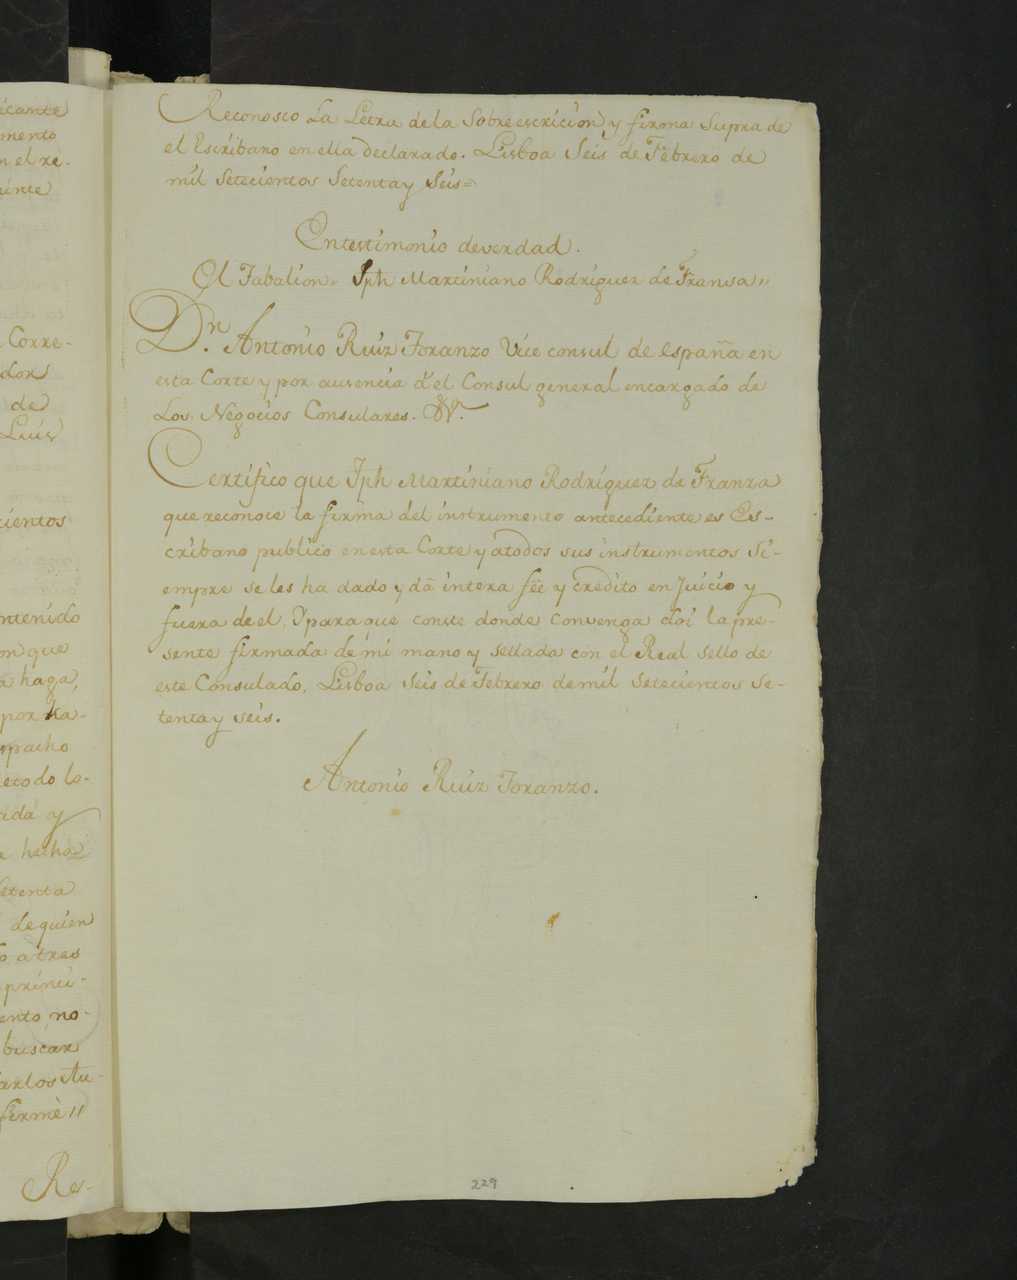 icante
mento
n el re-
iente
Corre-
dor
de
Luis
cientos
ntenido
on que
a haga,
por ha-
spacho
etodo lo-
cida y
a hecho
setenta
de quien
o, a tres
princi-
ento, no-
buscar
arlos Au-
firmè //
Res-
Reconosco La Letra de la Sobreescricion y firma Supra de
el Escribano en ella declarado. Lisboa Seis de Febrero de
mil Setecientos Setenta y Seis=
Entestimonio deverdad.
El Tabalion. Jph Martiniano Rodriguez de Fransa //
Dn. Antonio Ruiz Toranzo Vice consul de españa en
esta Corte y por ausencia d'el Consul general encargado de
Los Negocios Consulares. &a.
Certifico que Jph Martiniano Rodriguez de Franza
que reconoce la firma del instrumento antecediente es Es-
cribano publico en esta Corte y atodos sus instrumentos Si-
empre se les ha dado y dà intera feè y credito en Juicio y
fuera de el, Ypara que conste donde convenga doi la pre-
sente firmada de mi mano y sellada con el Real Sello de
este Consulado, Lisboa Seis de Febrero de mil Setecientos Se-
tenta y seis.
Antonio Ruiz Toranzo.
229